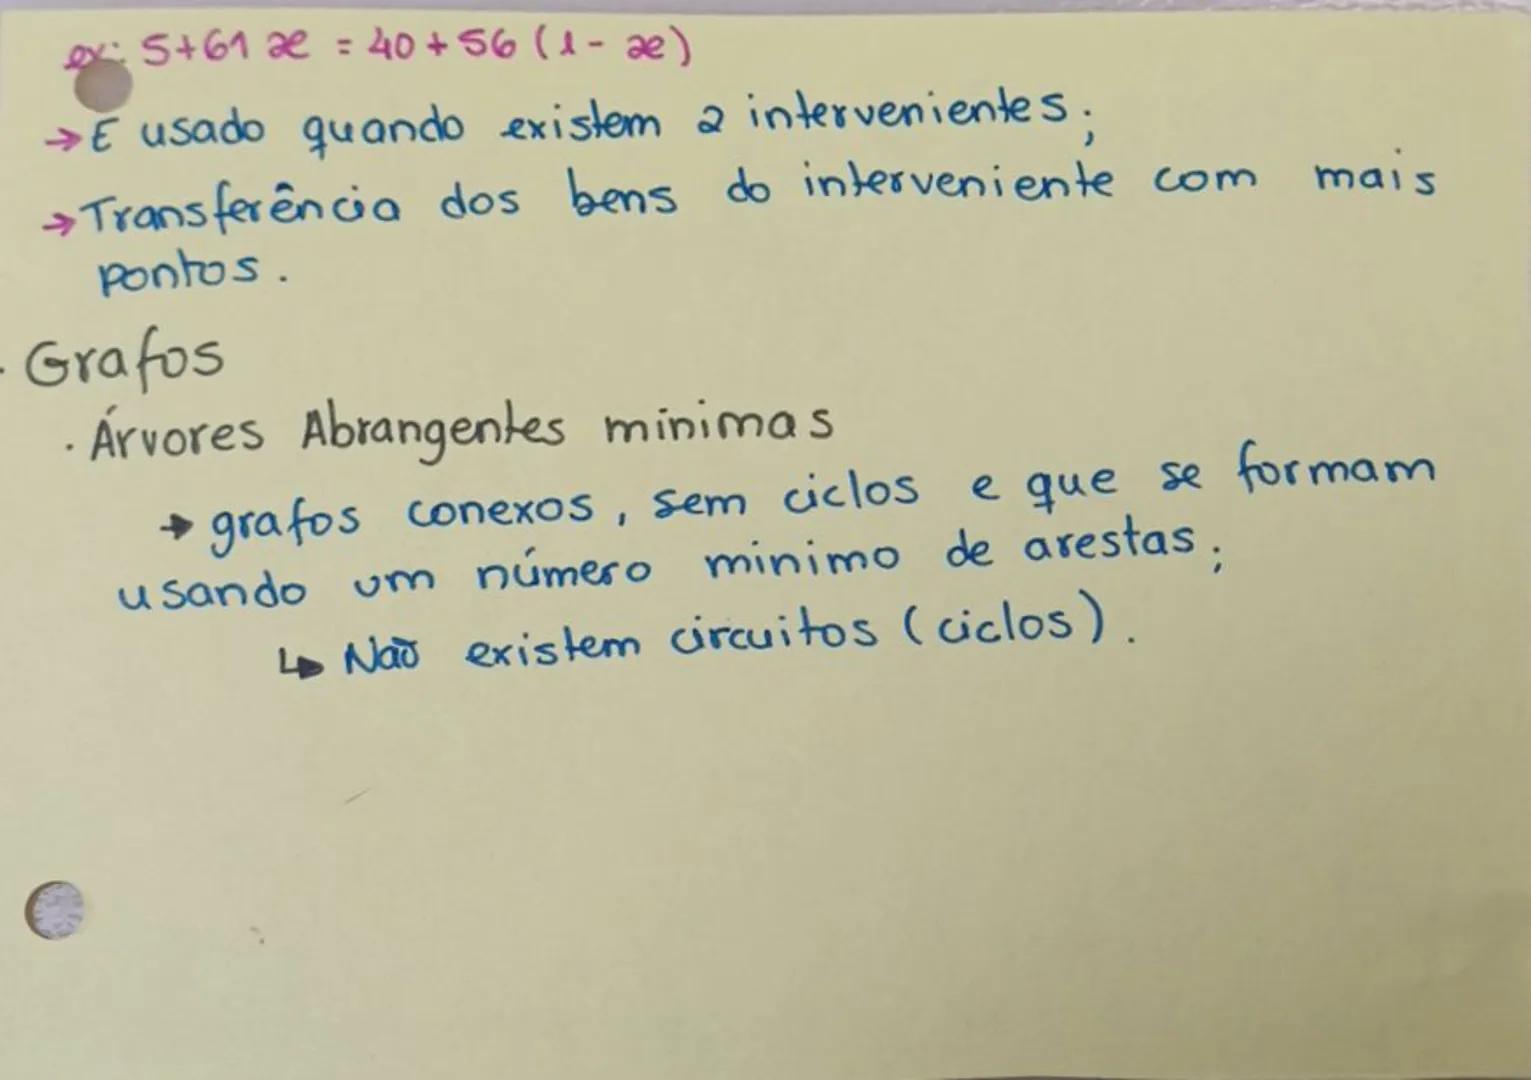 ex: 5+61x = 40+56(1-x)
→ É usado quando existem 2 intervenientes;
→ Transferência dos bens do interveniente com mais
pontos.
· Grafos
· Árvores Abrangentes minimas
→ grafos conexos, sem ciclos e que se formam
usando um número minimo de arestas;
↳ Não existem circuitos (ciclos).